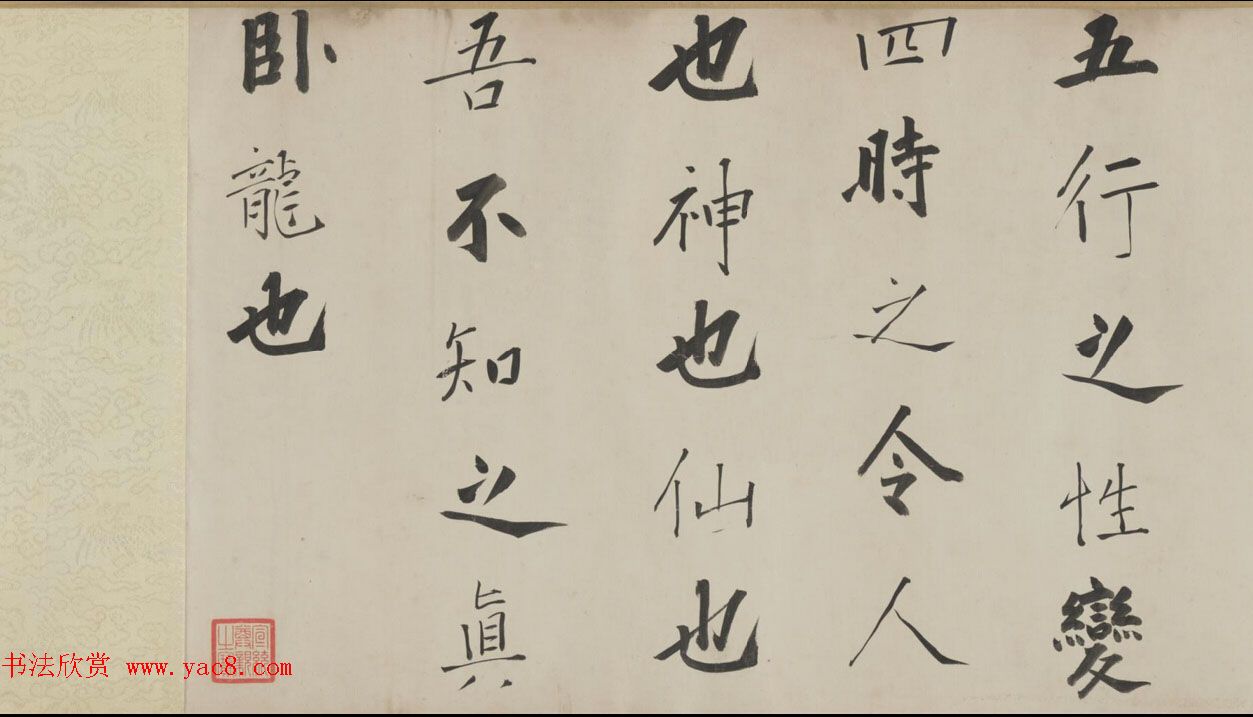 五行之性變
四時之令人
也神也仙也
吾不知之真
卧龍也
宣統御覽之寶
书法欣赏 www.yac8.com